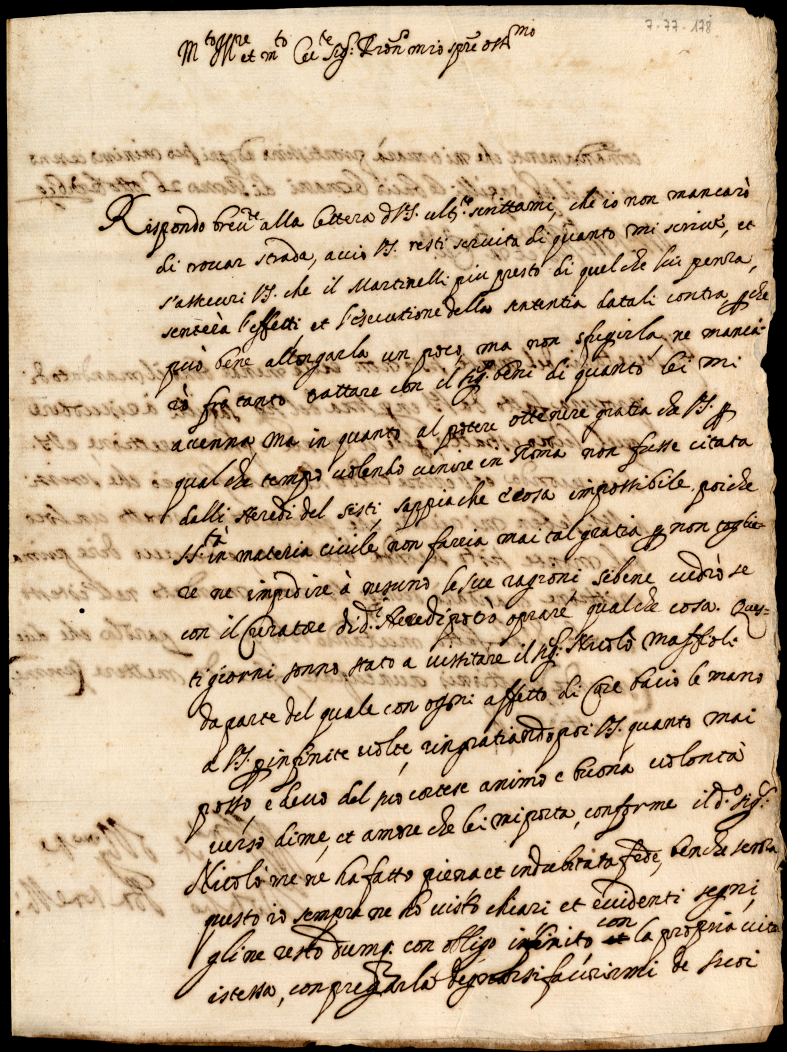 7·77·178
M.to Ill.re et m.to Ecc.te Sig.r Pron mio sp.re oss.mo
Rispondo brev.te alla lettera di V.S. ult.te scrittami, che io non mancarò
di trovar strada, acciò V.S. resti servita di quanto mi scrive, et
s'assicuri V.S. che il Martinelli più presto di quel che lui pensa,
sentirà l'effetti et l'esecutione della sententia datali contra, p che
può bene allongarla un poco, ma non sfugirla, ne manca-
rò fra tanto trattare con il Sig.r beni di quanto lei mi
acenna, ma in quanto al potere ottenire gratia che V.S. p
qualche tempo volendo venire in Roma non fusse citata
dalli Heredi del sesti, sappia che è cosa impossibile, poiche
S.S.tà in materia civile, non faccia mai tal gratia p non toglie-
re ne impedire à nesuno le sue ragioni sibene vedrò se
con il Curatore di d.ti Heredi potrò oprare qualche cosa. Ques-
ti giorni sonno stato a vissitare il Sig.r Nicolò Massioli
da parte del quale con ogni affetto di Core bacio le mano
a V.S. p infinite volte, ringratiando poi V.S. quanto mai
posso, e devo del suo cortese animo e buona volontà
verso di me, et amore che lei mi porta, conforme il d.o Sig.r
Nicolò me ne ha fatto piena et indubitata fede, benche senza
questo io sempre ne ho visto chiari et evidenti segni,
gli ne resto dunq. con obligo infinito con la propria vita
istessa, con pregarla degnarsi favorirmi de suoi